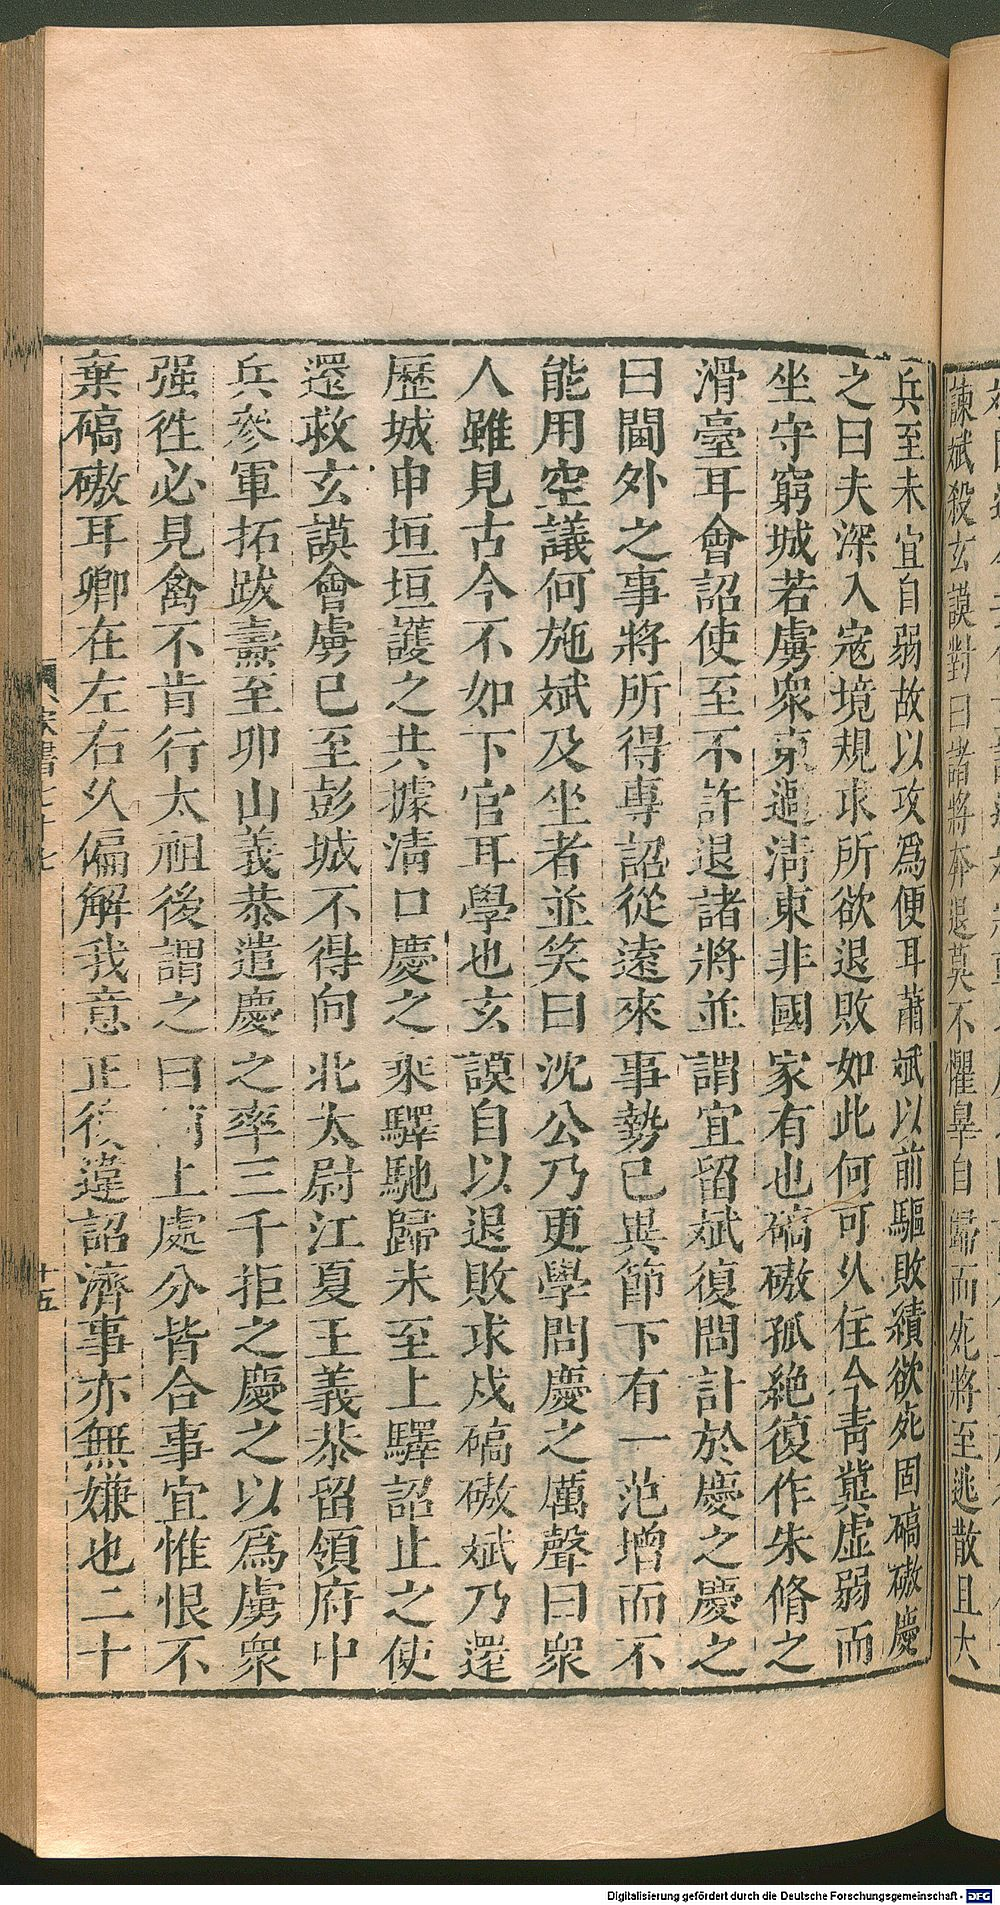 諫斌殺玄謨對曰諸將奔退莫不懼罪自歸而死將至逃散且大
兵至未宜自弱故以攻爲便耳蕭斌以前驅敗績欲死固碻磝慶
之曰夫深入寇境規求所欲退敗如此何可久住今青冀虛弱而
坐守窮城若虜衆東過清東非國家有也碻磝孤絶復作朱脩之
滑臺耳會詔使至不許退諸將並謂宜留斌復問計於慶之慶之
曰閫外之事將所得專詔從遠來事勢已異節下有一范增而不
能用空議何施斌及坐者並笑曰沈公乃更學問慶之厲聲曰衆
人雖見古今不如下官耳學也玄謨自以退敗求戍碻磝斌乃還
歷城申垣垣護之共據清口慶之乘驛馳歸未至上驛詔止之使
還救玄謨會虜已至彭城不得向北太尉江夏王義恭留領府中
兵參軍拓跋燾至卯山義恭遣慶之率三千拒之慶之以爲虜衆
强徃必見禽不肯行太祖後謂之曰河上處分皆合事宜惟恨不
棄碻磝耳卿在左右久偏解我意正復違詔濟事亦無嫌也二十
宋書七十七
十五
Digitalisierung gefördert durch die Deutsche Forschungsgemeinschaft - DFG